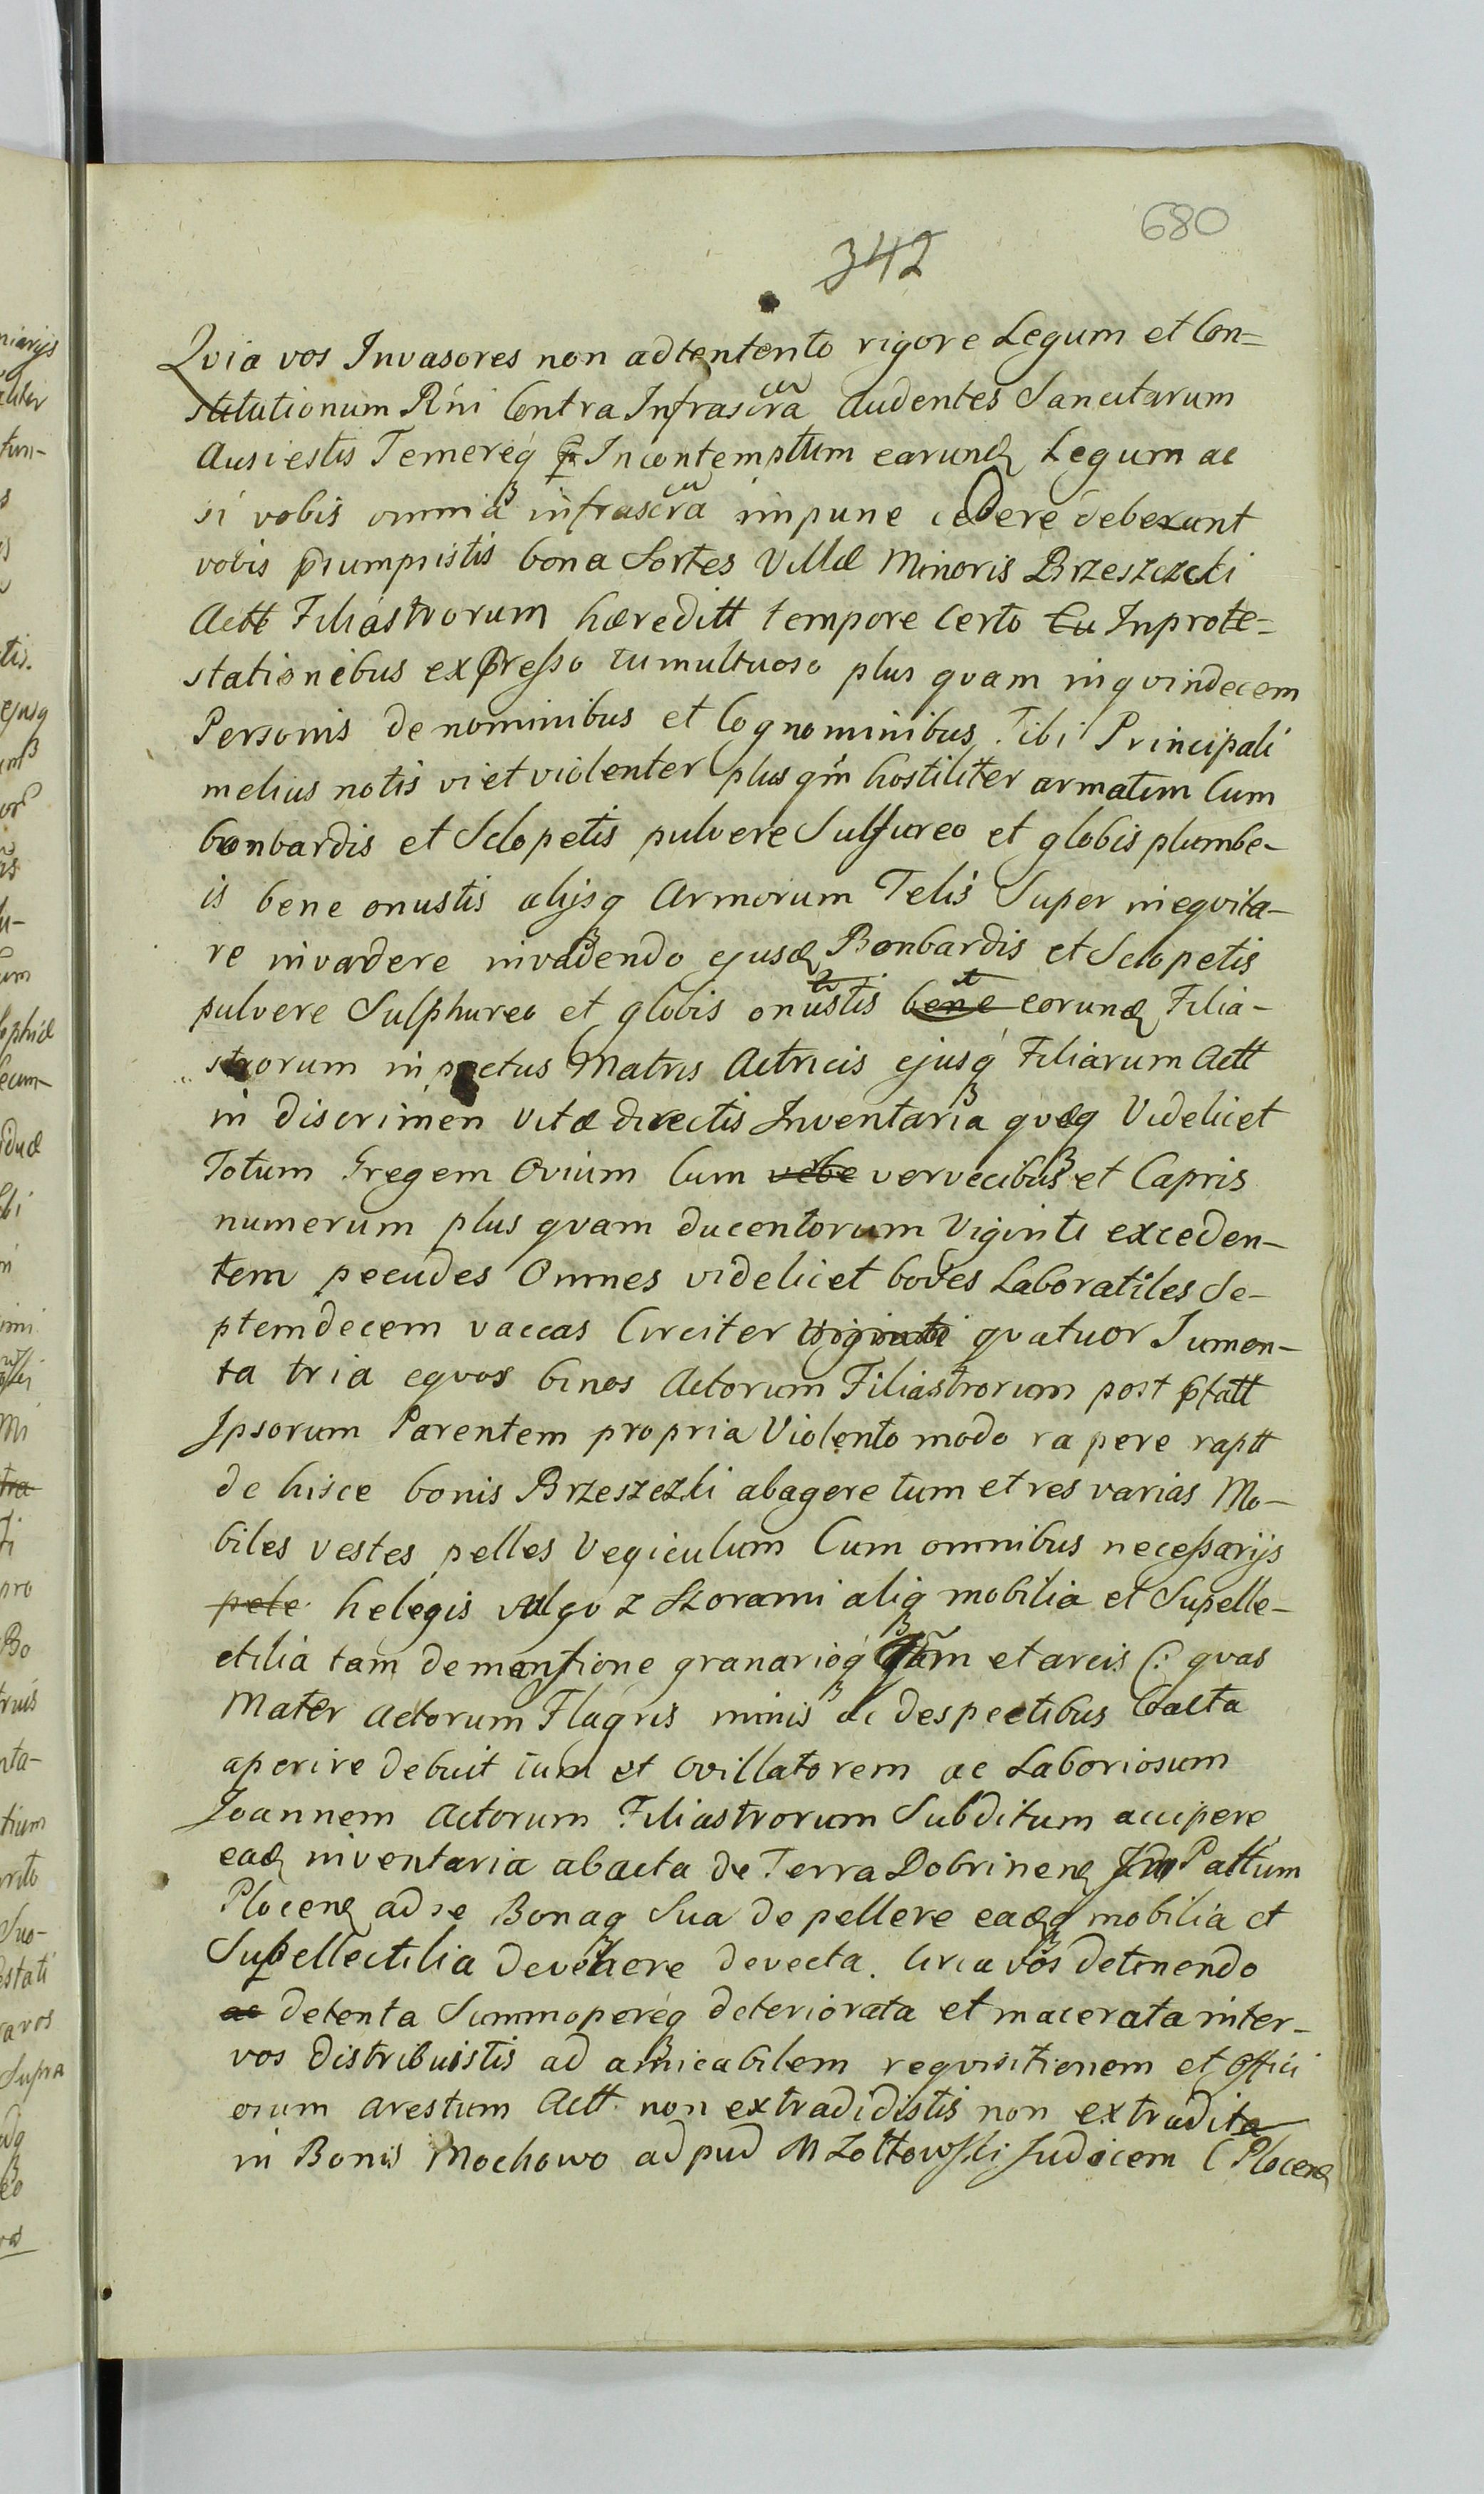 680
342
Qvia vos Invasores non adtentento rigore Legum et Con=
stitutionum Rñi Contra Infrascra Audentes Sancitarum
Ausi estis Temereq̃ Incontemptum earunq Legum ac
si vobis omnia infrascra impune cedere deberunt
vobis p̃sumpsistis bona Sortes Villæ Minoris Brzeszczki
Actt Filiastrorum hæreditt tempore certo Inprote=
stationibus expresso tumultuoso plus qvam inqvindecem
Personis de nominibus et Cognominibus Tibi Principali
melius notis vi et violenter plus qm̃ hostiliter armatim Cum
bonbardis et Sclopetis pulvere Sulfureo et globis plumbe-
is bene onustis alijsq Armorum Telis Super ineqvita-
re invadere invadendo ejusq Bonbardis et Sclopetis
pulvere Sulphureo et globis onustis bene eorunq Filia-
strorum in pectus Matris Actricis ejusq Filiarum Actt
in discrimen vitæ directis Inventaria qvæq Videlicet
Totum Gregem Ovium Cum verbe vervecibus et Capris
numerum plus qvam ducentorum Viginti exceden-
tem pecudes Omnes videlicet boves Laboratiles Se-
ptemdecem vaccas Circiter viginti qvatuor Jumen-
ta tria eqvos binos Actorum Filiastrorum post p̃tatt
Ipsorum Parentem propria Violento modo rapere raptt
de hisce bonis Brzeszczki abagere tum et res varias Mo-
biles vestes pelles Vegiculum Cum omnibus necessarijs
pele helegis vulgo z Szorami aliq mobilia et Supelle-
ctilia tam demansione granarioq̃ et arcis (: qvas
Mater Actorum Flagris minis ac despectibus Coacta
aperire debuit tum et Ovillatorem ac Laboriosum
Joannem Actorum Filiastrorum Subditum accipere
eaq inventaria abacta de Terra Dobrinenq Pattum
Plocenq ad se Bonaq Sua depellere eaqq mobilia et
Supellectilia devehere devecta. Circa vos detinendo
ac detenta Summopereq deteriorata et macerata inter-
vos distribuistis ad amicabilem reqvisitionem et Offici
osum arestum Actt non extradidistis non extradita
in Bonis Mochowo ad pud M Zołtowski Judicem (Plocenq